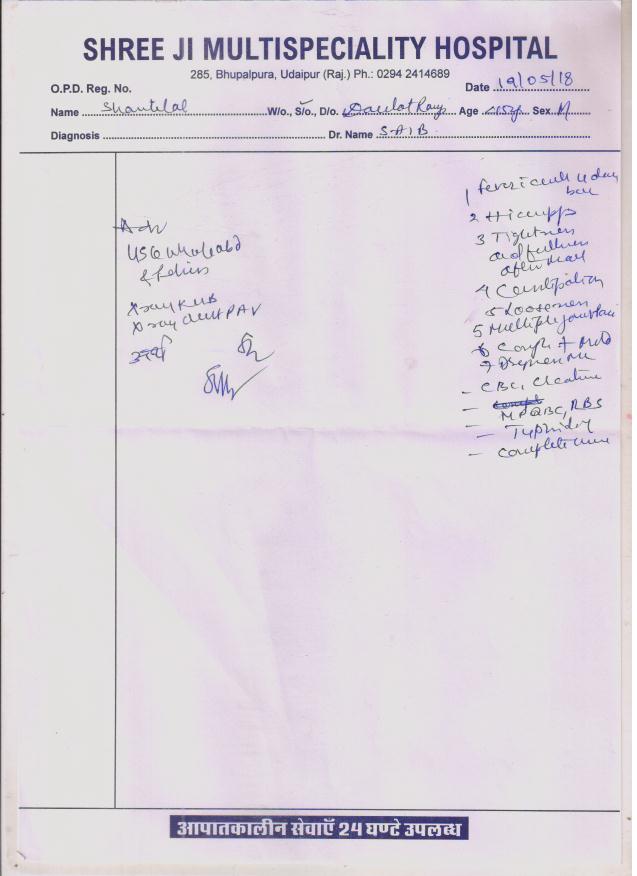 SHREE JI MULTISPECIALITY HOSPITAL
285, Bhupalpura, Udaipur (Raj.) Ph.: 0294 2414689
O.P.D. Reg. No.
Date 19/05/18
Name Shantilal W/o., S/o., D/o. Daulat Ram Age Sex M
Diagnosis Dr. Name S.A.I.B.
Adv
USG whole abd
& Pelvis
Xray KUB
Xray chest PAV
1 fever
2 Hiccupps
3 Tightness
and fullness
after meal
4 Constipation
5 Looseness
5 Multiple
Cough +
- CBC, Creatine
- MPQBC, RBS
- Typhidot
- Complete urine
आपातकालीन सेवाएँ 24 घण्टे उपलब्ध